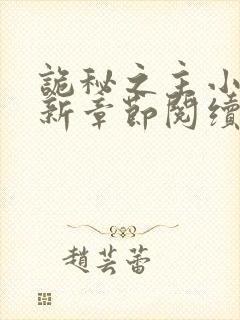 詭秘之主小
新章節閱續
趙芸蕾